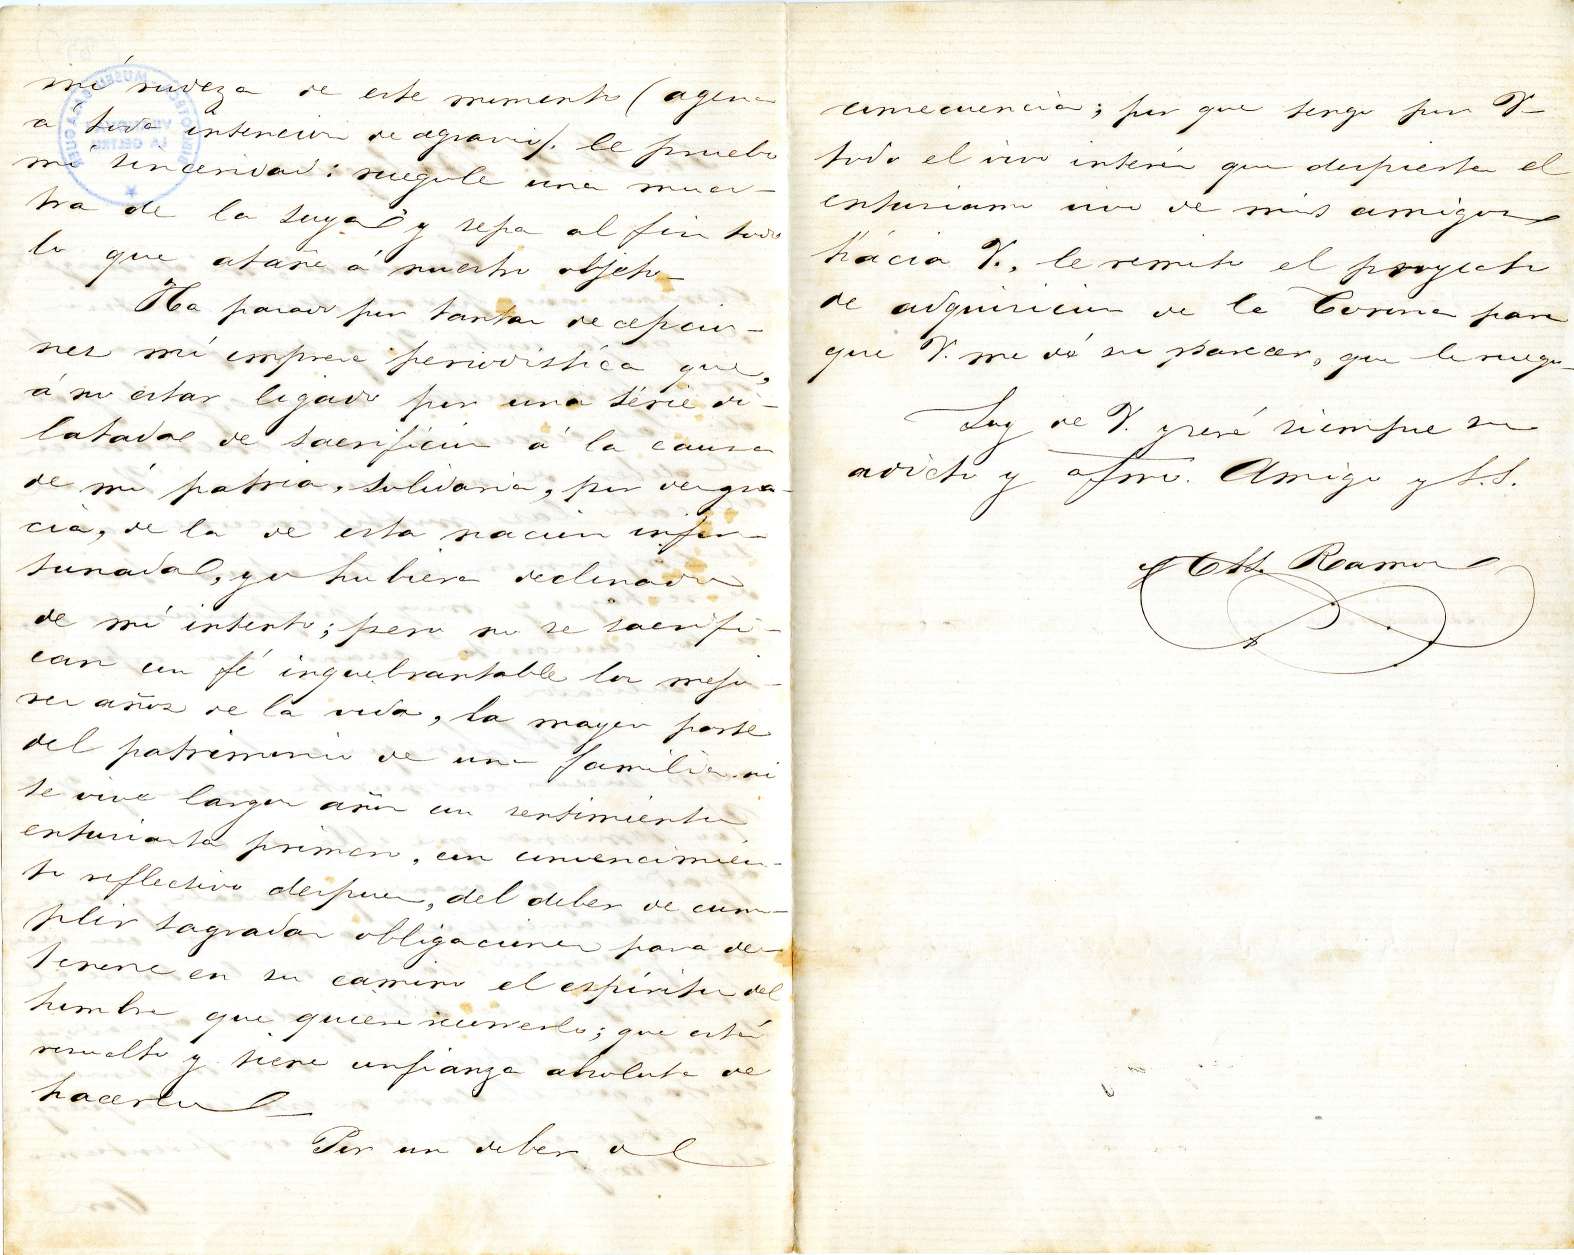 mi rudeza de este momento (agena
a toda intencion de agravio). le pruebe
mi sinceridad: ruegole una mues-
tra de la suya y sepa al fin todo
lo que atañe á nuestro objeto
Ha pasado por tantas decepcio-
nes mi empresa periodistica que,
á no estar ligado por una série di-
latada de sacrificios á la causa
de mi patria, solidaria, por desgra-
cia, de la de esta nacion infor-
tunada, yo hubiera declinado
de mi intento; pero no se sacrifi-
can con fé inquebrantable los mejo-
res años de la vida, la mayor parte
del patrimonio de una familia ni
se vive largos años con sentimiento
entusiasta primero, con convencimien-
to reflectivo despues, del deber de cum-
plir sagradas obligaciones para de-
tenerse en su camino el espíritu del
hombre que quiere recorrerlo; que está
resuelto y tiene confianza absoluta de
hacerlo
Por un deber de
consecuencia; por que tengo por V.
todo el vivo interés que despierta el
entusiasmo vivo de mis amigos
hácia V., le remito el proyecto
de adquisicion de la Corona para
que V. me dé su parecer, que le ruego
Soy de V. y seré siempre su
adicto y afmo. Amigo y S.S.
Ramos